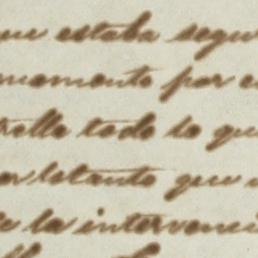 que estaba segu
momento por e
trella todo lo que
or lo tanto que
de la intervenci